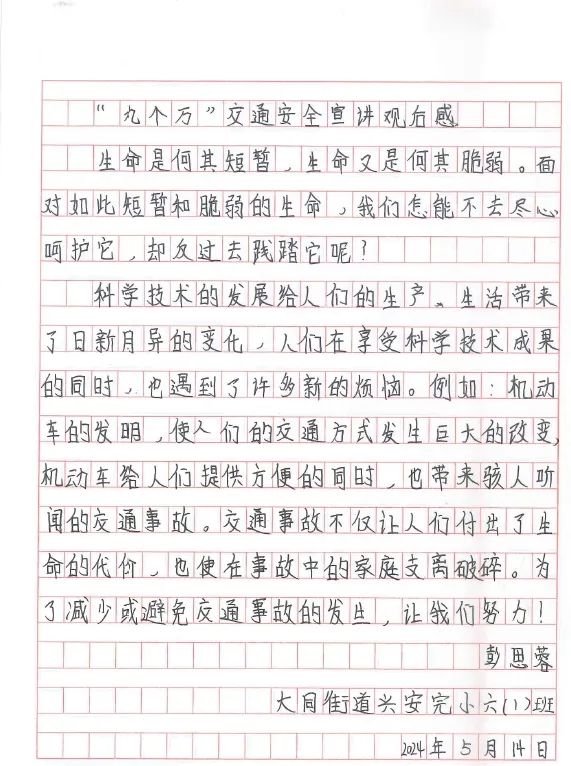 “九个万”交通安全宣讲观后感
生命是何其短暂，生命又是何其脆弱。面
对如此短暂和脆弱的生命，我们怎能不去尽心
呵护它，却反过去践踏它呢？
科学技术的发展给人们的生产、生活带来
了日新月异的变化，人们在享受科学技术成果
的同时，也遇到了许多新的烦恼。例如：机动
车的发明，使人们的交通方式发生巨大的改变，
机动车给人们提供方便的同时，也带来骇人听
闻的交通事故。交通事故不仅让人们付出了生
命的代价，也使在事故中的家庭支离破碎。为
了减少或避免交通事故的发生，让我们努力！
彭思蓉
大同街道兴安完小六(1)班
2024年5月14日